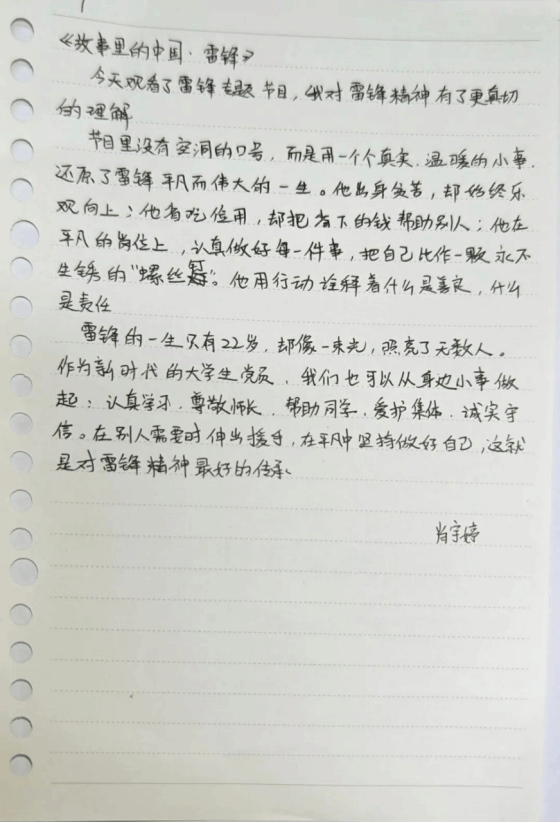 《故事里的中国·雷锋》
今天观看了雷锋专题节目，我对雷锋精神有了更真切
的理解
节目里没有空洞的口号，而是用一个个真实、温暖的小事，
还原了雷锋平凡而伟大的一生。他出身贫苦，却始终乐
观向上；他省吃俭用，却把省下的钱帮助别人；他在
平凡的岗位上，认真做好每一件事，把自己比作一颗永不
生锈的“螺丝钉”。他用行动诠释着什么是善良，什么
是责任
雷锋的一生只有22岁，却像一束光，照亮了无数人。
作为新时代的大学生党员，我们也可以从身边小事做
起：认真学习、尊敬师长、帮助同学、爱护集体、诚实守
信。在别人需要时伸出援手，在平凡中坚持做好自己，这就
是对雷锋精神最好的传承、
肖宇婷